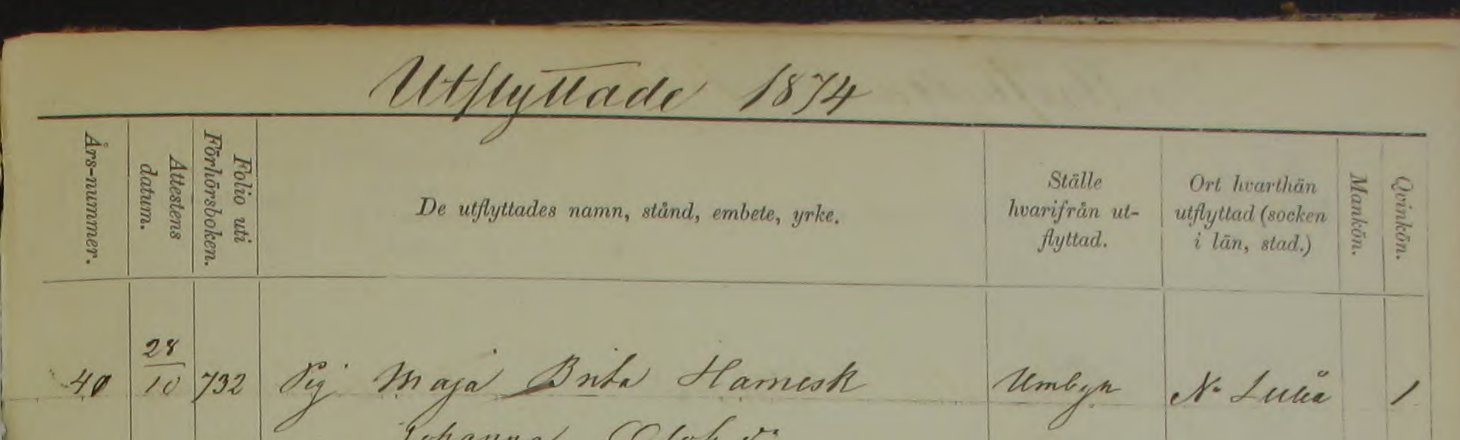 Utflyttade 1874
Års-nummer.
Attestens
datum.
Folio uti
Förhörsboken.
De utflyttades namn, stånd, embete, yrke.
Ställe
hvarifrån ut-
flyttad.
Ort hvarthän
utflyttad (socken
i län, stad.)
Mankön.
Qvinkön.
40 28/10 732 Pig Maja Brita Harnesk Umbyn N. Luleå 1
Johanna